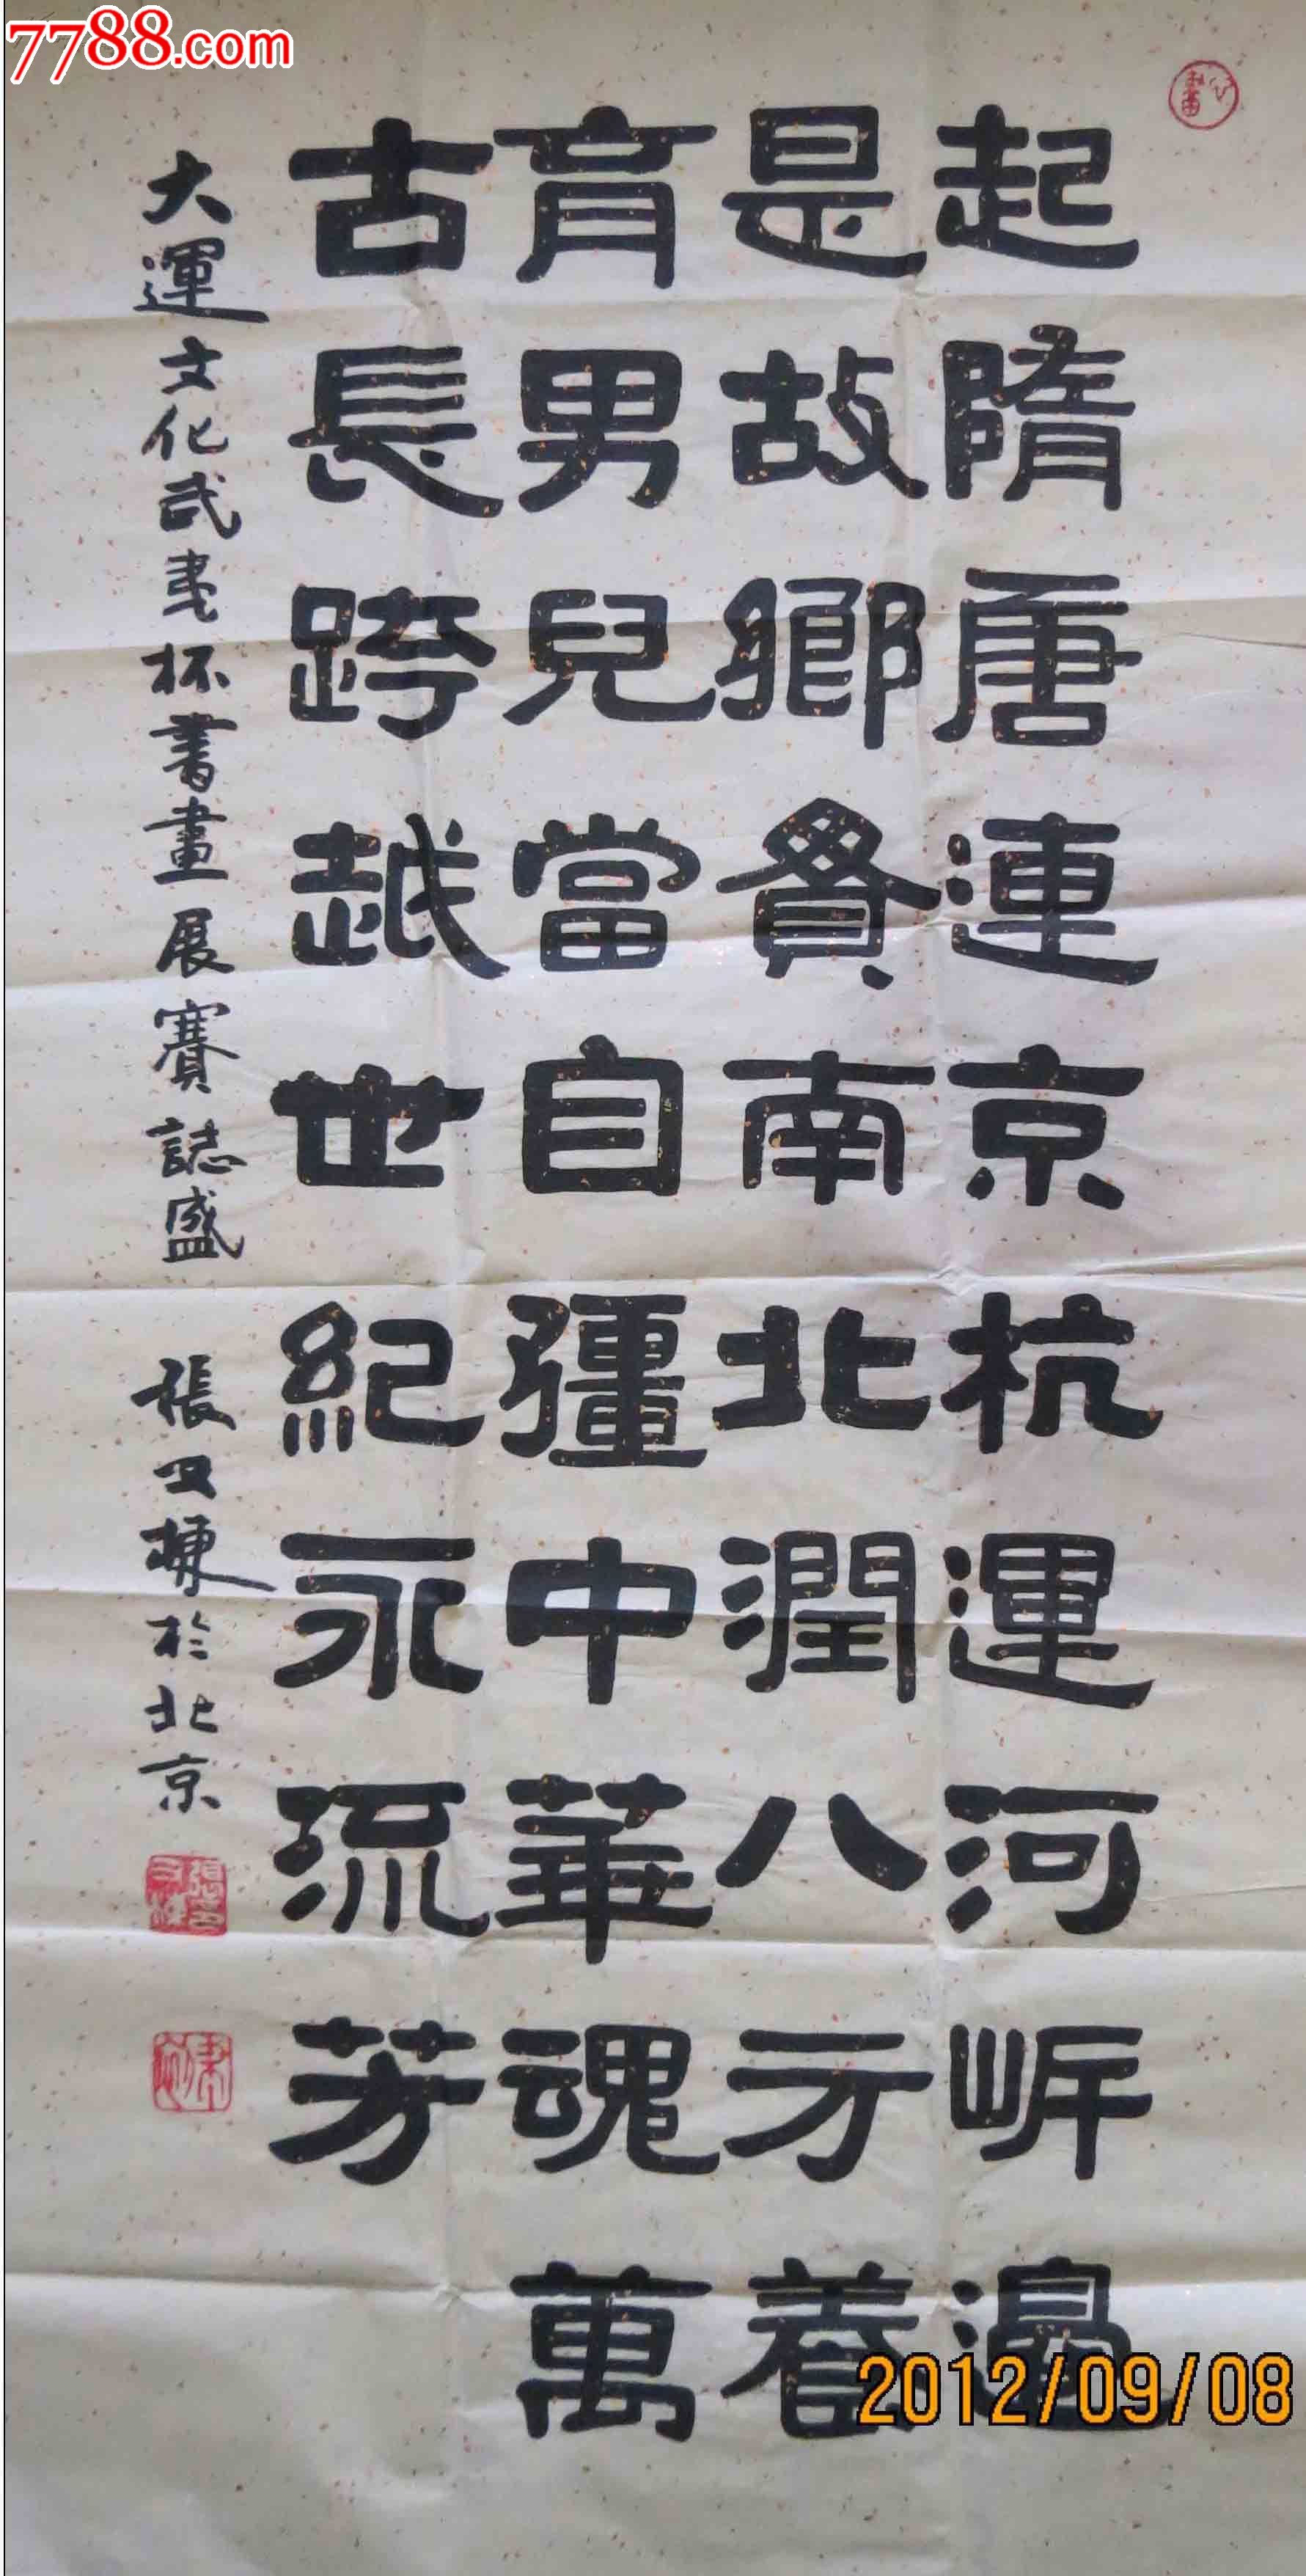 7788.com
起隋唐連京杭運河岍邊
是故鄉貫南北潤八方養
育男兒當自彊中華魂萬
古長跨越世紀永流芳
大運文化武夷杯書畫展賽誌盛
張又棟於北京
2012/09/08